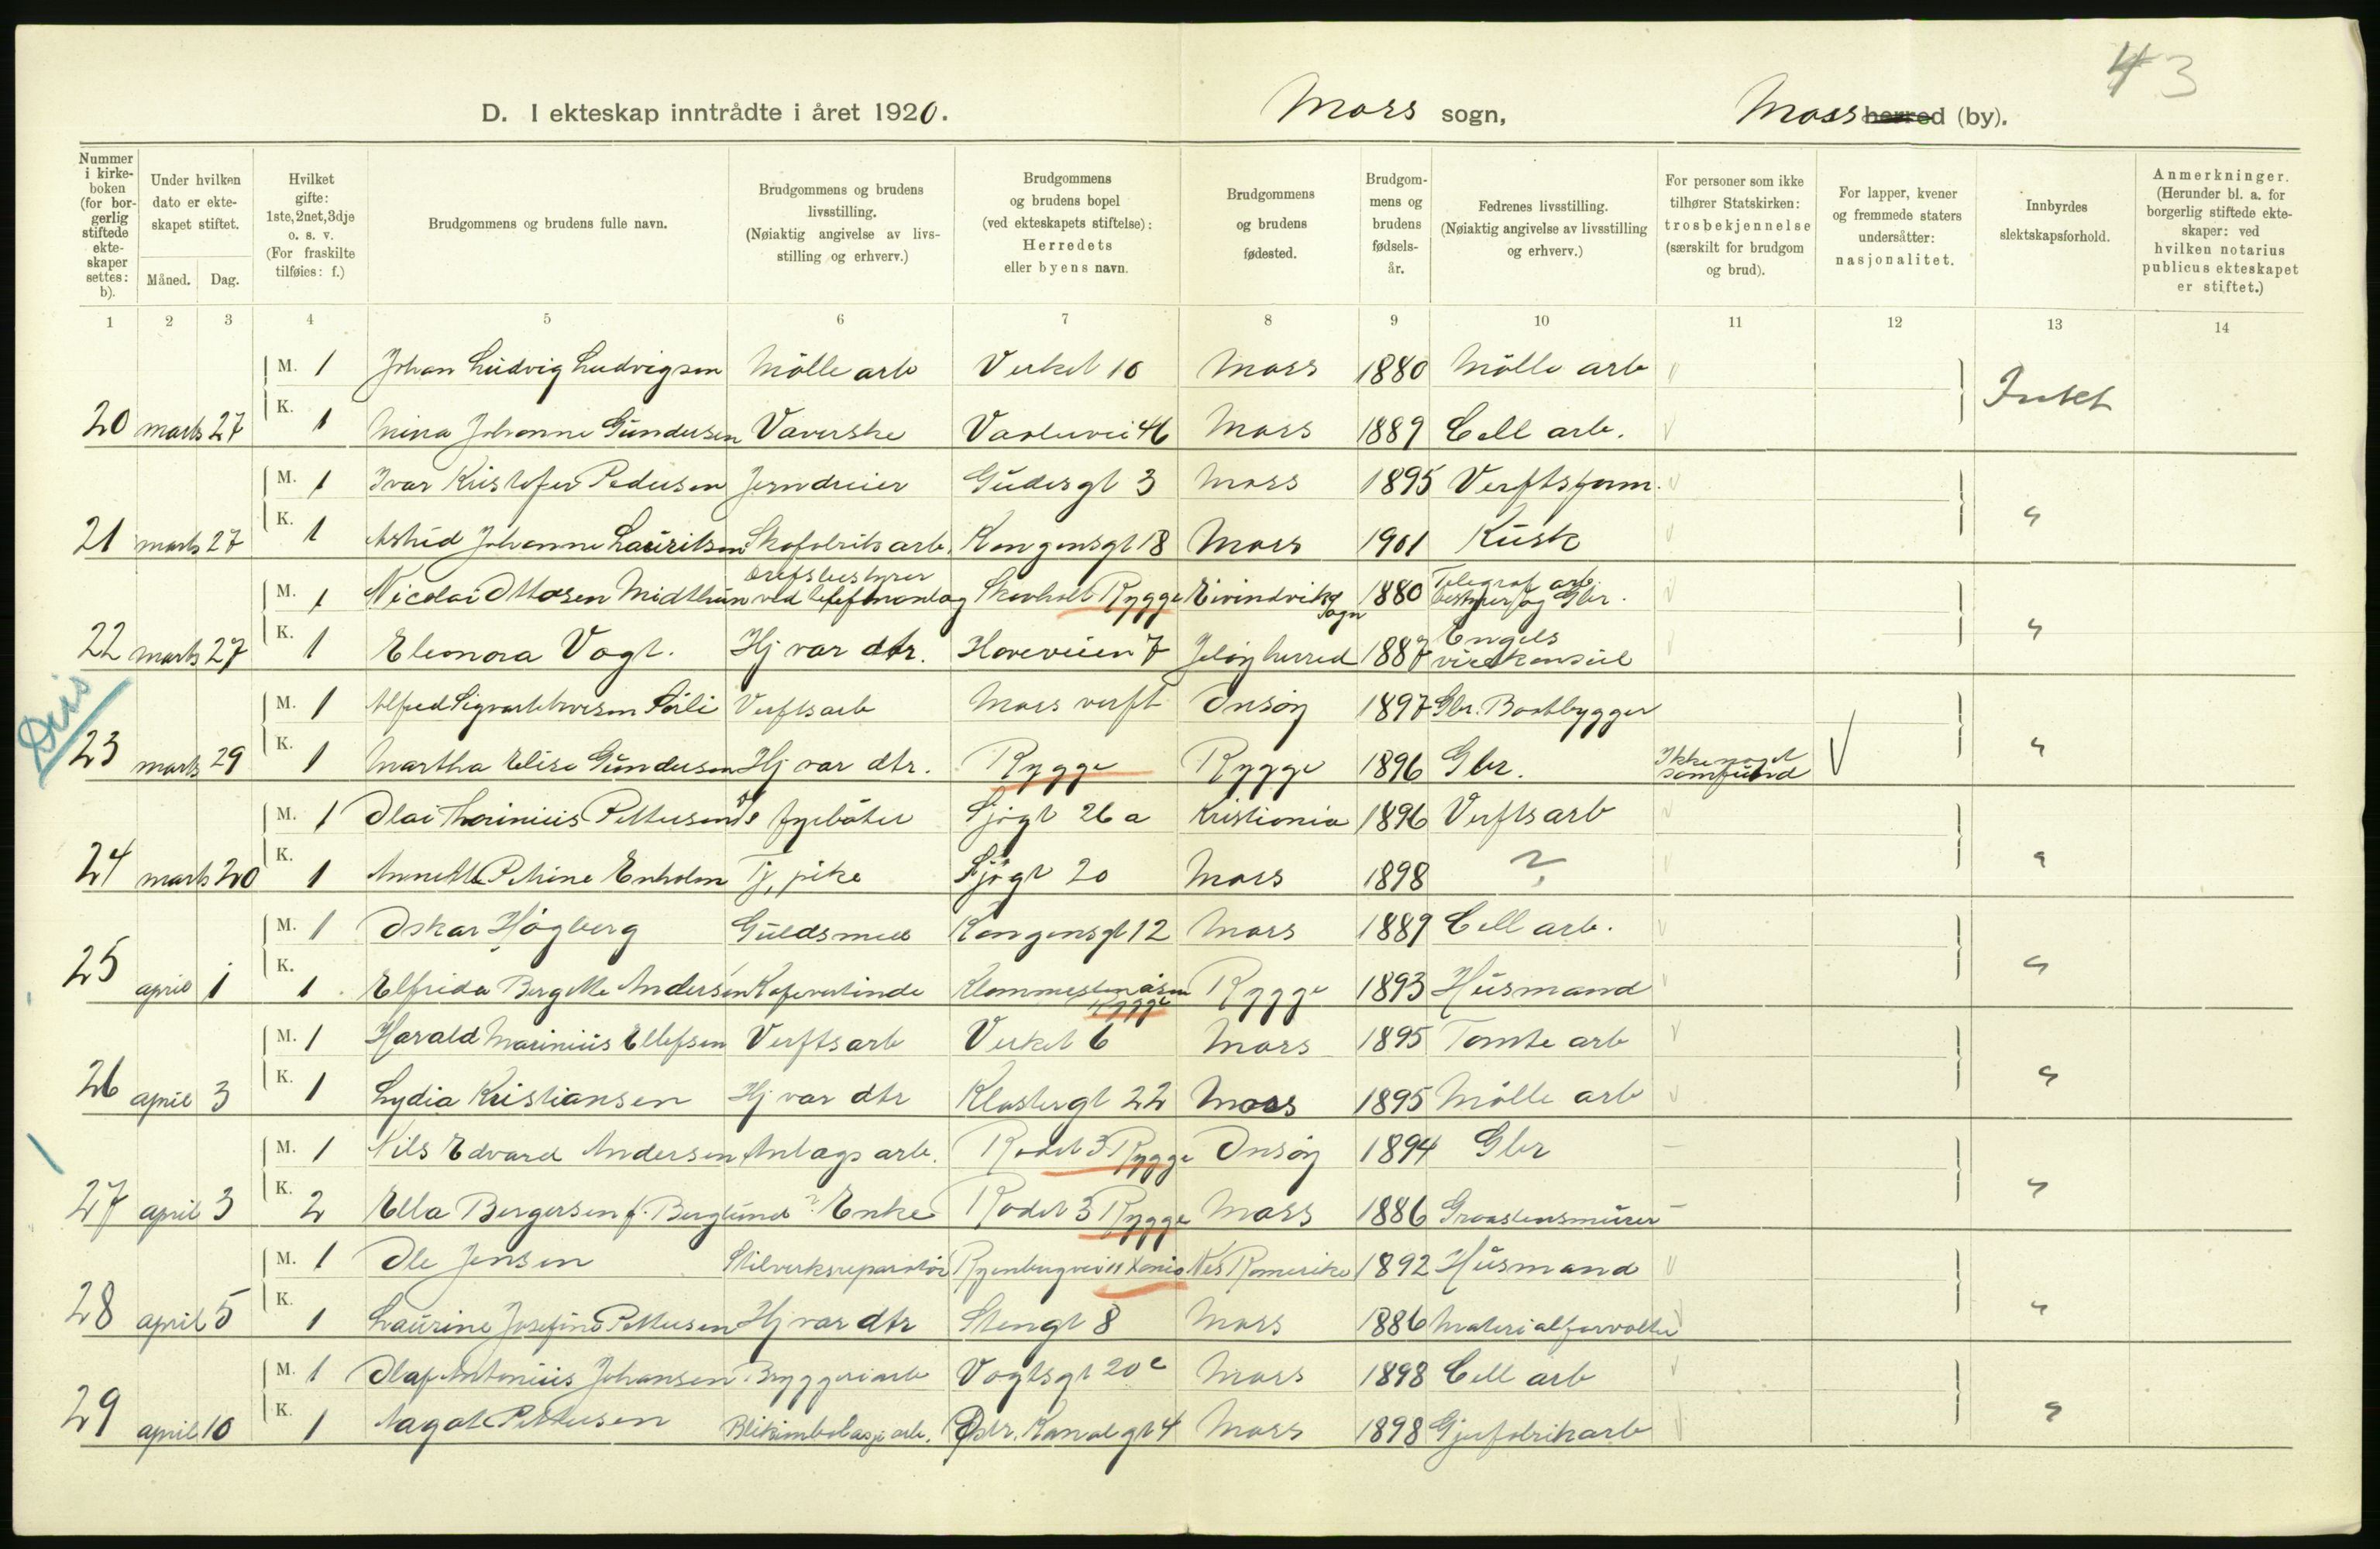 4 3
D. I ekteskap inntrådte i året 1920. Moss sogn, Moss herred (by).
Nummer i kirkeboken (for borgerlig stiftede ekteskaper settes: b).
Under hvilken dato er ekteskapet stiftet.
Måned. Dag.
Hvilket gifte: 1ste, 2net, 3dje o. s. v. (For fraskilte tilføies: f.)
Brudgommens og brudens fulle navn.
Brudgommens og brudens livsstilling. (Nøiaktig angivelse av livsstilling og erhverv.)
Brudgommens og brudens bopel (ved ekteskapets stiftelse): Herredets eller byens navn.
Brudgommens og brudens fødested.
Brudgommens og brudens fødselsår.
Fedrenes livsstilling. (Nøiaktig angivelse av livsstilling og erhverv.)
For personer som ikke tilhører Statskirken: trosbekjennelse (særskilt for brudgom og brud).
For lapper, kvener og fremmede staters undersåtter: nasjonalitet.
Innbyrdes slektskapsforhold.
Anmerkninger. (Herunder bl. a. for borgerlig stiftede ekteskaper: ved hvilken notarius publicus ekteskapet er stiftet.)
1 2 3 4 5 6 7 8 9 10 11 12 13 14
M. 1 Johan Ludvig Ludvigsen Mölle arb Verket 10 Moss 1880 Mölle arb
20 marts 27 K. 1 Mina Johanne Gundersen Væverske Vaalervei 46 Moss 1889 Cell arb. Intet
M. 1 Ivar Kristofer Pedersen Jerndreier Gudesgt 3 Moss 1895 Verftsform.
21 marts 27 K. 1 Astrid Johanne Lauritsen Skofabriksarb. Kongensgt 18 Moss 1901 Kusk "
M. 1 Nicolai Ottosen Midthun Driftsbestyrer ved telefonanlæg Skovholt Rygge Eivindvik Sogn 1880 Telegraf arb. bestyrer og Gbr.
22 marts 27 K. 1 Eleonora Vogt. Hj var dtr. Hoveveien 7 Jelöy herred 1887 Engels visekonsul "
Dis
M. 1 Alfred Sigvart Iversen Sörli Verftsarb Moss verft Onsöy 1897 Gbr. Baatbygger
23 marts 29 K. 1 Martha Elise Gundersen Hj var dtr. Rygge Rygge 1896 Gbr. Ikke noget samfund "
M. 1 Olai Thorinius Pettersen D/S fyrböter Sjögt 26 a Kristiania 1896 Verftsarb
24 marts 20 K. 1 Annette Petrine Enholm Tj. pike Sjögt 20 Moss 1898 ? "
M. 1 Oskar Högberg Guldsmed Kongensgt 12 Moss 1889 Cell arb.
25 april 1 K. 1 Elfrida Bergitte Andersen Kafevertinde Klommestenåsen Rygge Rygge 1893 Husmand "
M. 1 Harald Marinius Ellefsen Verftsarb Verket 6 Moss 1895 Tomte arb
26 april 3 K. 1 Lydia Kristiansen Hj var dtr Klostergt 22 Moss 1895 Mölle arb "
M. 1 Nils Edvard Andersen Anlægs arb. Rodet 3 Rygge Onsöy 1894 Gbr —
27 april 3 K. 2 Ella Bergersen f. Berglund ? Enke Rodet 3 Rygge Moss 1886 Graastensmurer — "
M. 1 Ole Jensen Stilverksreparatör Ryenbergvei 11 Xania Nes Romerike 1892 Husmand
28 april 5 K. 1 Laurine Josefine Pettersen Hj var dtr Stengt 8 Moss 1886 Materialforvalter "
M. 1 Olaf Antonius Johansen Bryggeriarb Vogtsgt 20 c Moss 1898 Cell arb
29 april 10 K. 1 Aagot Pettersen Blikembalasje arb. Østr. Kanalgt 4 Moss 1898 Gjærfabrikarb "